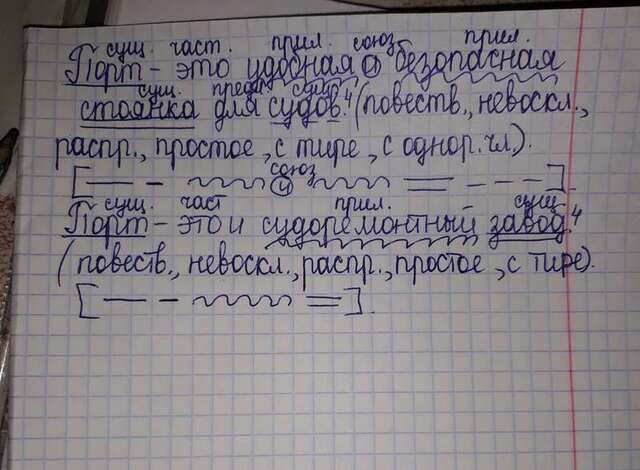 сущ. част. прил. союз прил.
Порт - это удобная и безопасная
сущ. предл. сущ.
стоянка для судов.⁴ (повеств., невоскл.,
распр., простое, с тире, с однор. чл.).
союз
[ и ].
сущ. част прил. сущ.
Порт - это и судоремонтный завод.⁴
(повеств., невоскл., распр., простое, с тире).
[ ].